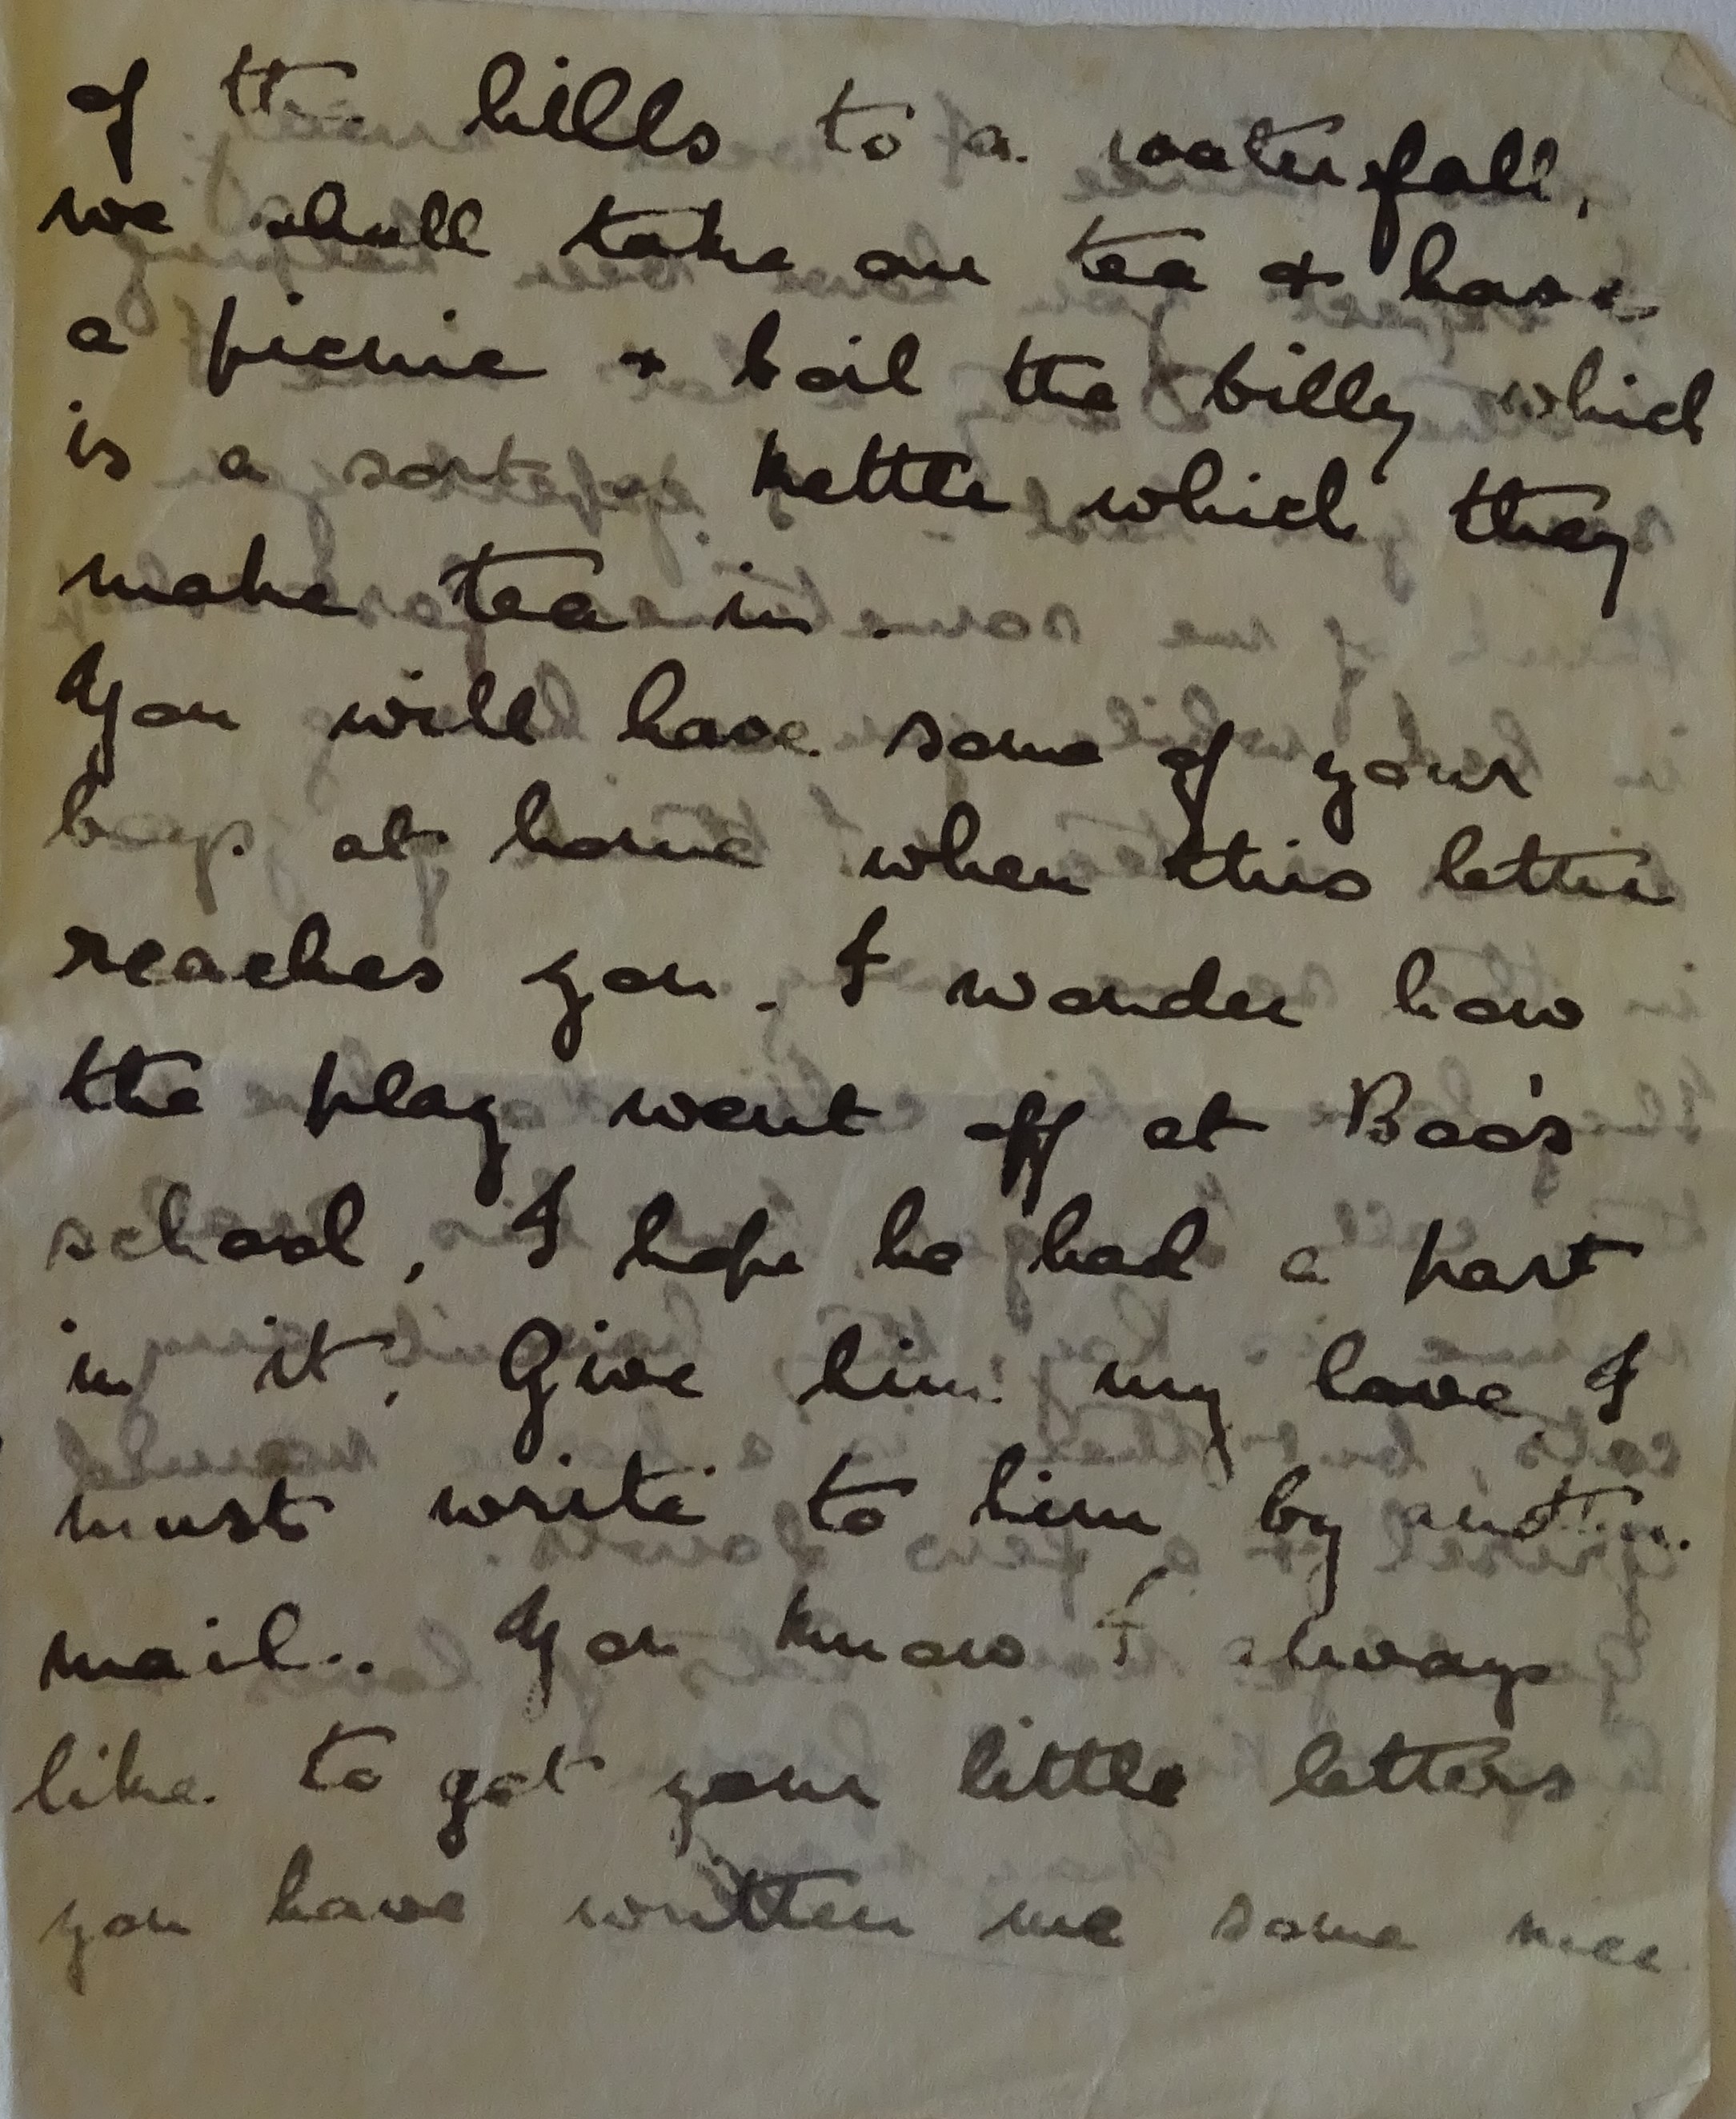 of the hills to a waterfall,
we shall take our tea & have
a picnic & boil the billy which
is a sort of kettle which they
make tea in.
You will have some of your
boys at home when this letter
reaches you. I wonder how
the play went off at Boo's
school, I hope he had a part
in it. Give him my love, I
must write to him by another
mail.. You know I always
like to get your little letters
you have written me some nice